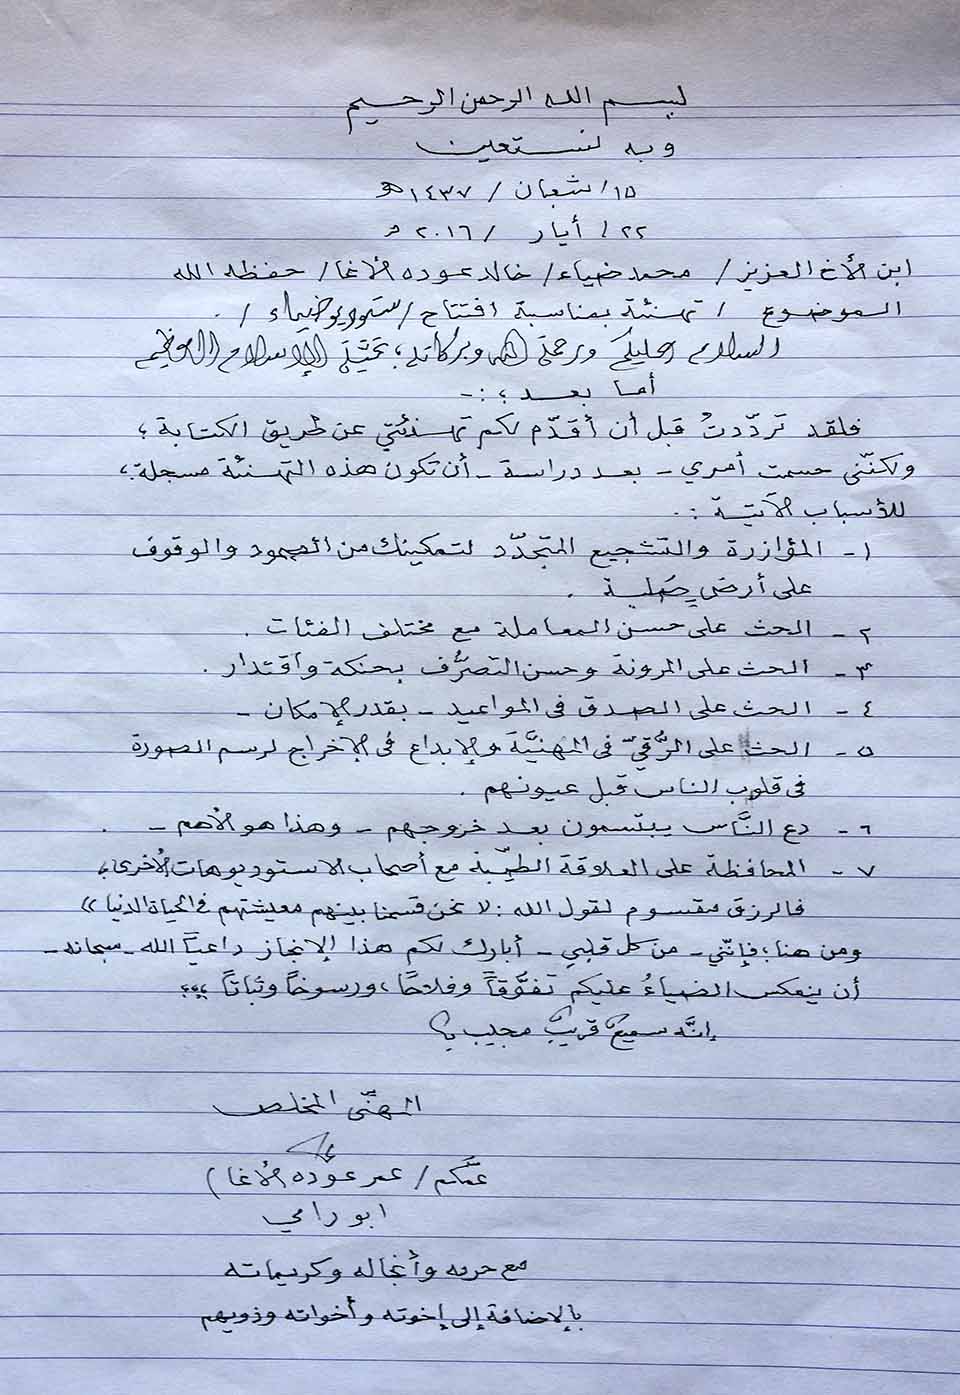 بسم الله الرحمن الرحيم
وبه نستعين
١٥/ شعبان / ١٤٣٧هـ
٢٢/ أيار / ٢٠١٦م
ابن الأخ العزيز/ محمد ضياء/ خالد عوده الأغا/ حفظه الله
الموضوع / تهنئة بمناسبة افتتاح / ستوديو ضياء /.
السلام عليكم ورحمة الله وبركاته؛ تحيّة الإسلام العظيم
أما بعد؛:-
فلقد تردّدتُ قبل أن أقدّم لكم تهنئتي عن طريق الكتابة؛
ولكنّني حسمت أمري - بعد دراسة - أن تكون هذه التهنئة مسجلة؛
للأسباب الآتية :.
١- المؤازرة والتشجيع المتجدّد لتمكينك من الصمود والوقوف
على أرضٍ صلبة .
٢- الحث على حسن المعاملة مع مختلف الفئات .
٣- الحث على المرونة وحسن التصرُّف بحنكة واقتدار .
٤- الحث على الصدق في المواعيد - بقدر الإمكان -
٥- الحث على الرُّقيّ في المهنيَّة والإبداع في الإخراج لرسم الصورة
في قلوب الناس قبل عيونهم .
٦- دع النَّاس يبتسمون بعد خروجهم - وهذا هو الأهم - .
٧- المحافظة على العلاقة الطيّبة مع أصحاب الاستوديوهات الأخرى؛
فالرزق مقسوم لقول الله : (( نحن قسمنا بينهم معيشتهم في الحياة الدنيا ))
ومن هنا؛ فإنّني - من كل قلبي - أبارك لكم هذا الإنجاز داعياً الله - سبحانه -
أن ينعكس الضياءُ عليكم تفوّقاً وفلاحاً، ورسوخاً وثباتاً ؛؛؛
إنَّه سميعٌ قريبٌ مجيب
المهنّئ المخلص
عمّكم/ عمر عوده الأغا
ابو رامي
مع حرمه وأنجاله وكريماته
بالإضافة إلى إخوته وأخواته وذويهم